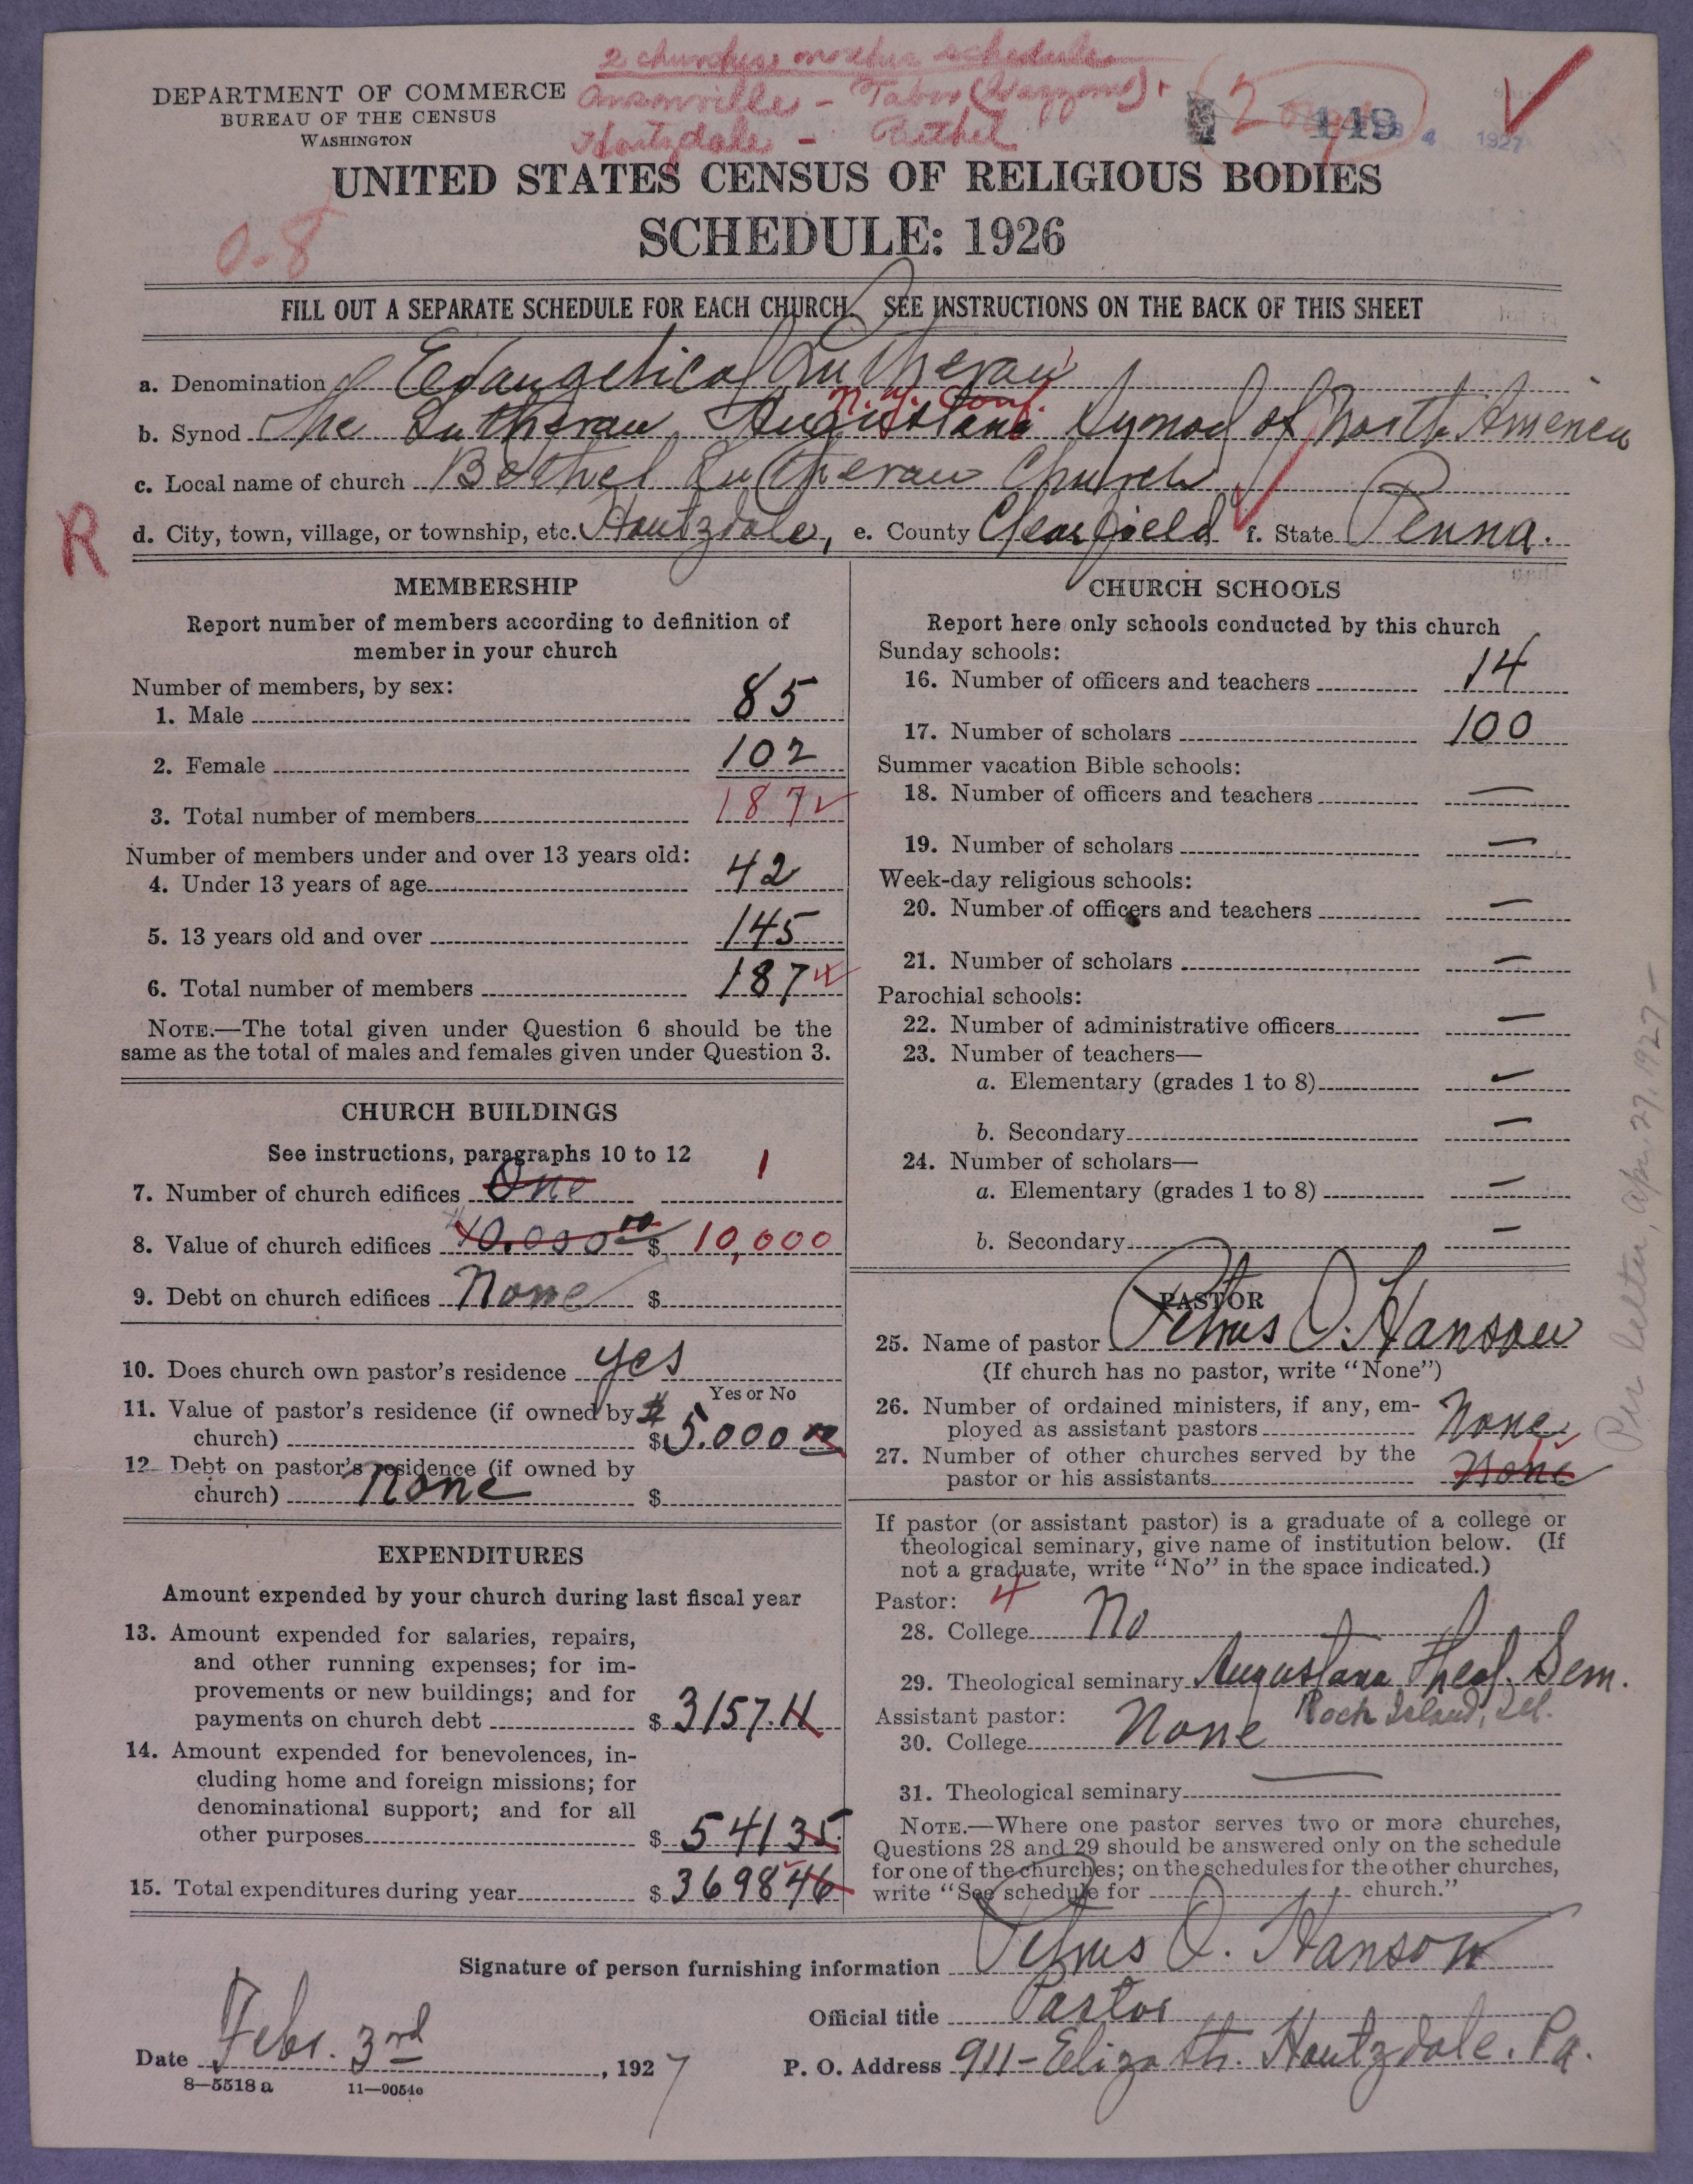 2 churches on other schedule
DEPARTMENT OF COMMERCE
BUREAU OF THE CENSUS
WASHINGTON
Ansonville - Tabor
Houtzdale - Bethel
2
149
4 1927
UNITED STATES CENSUS OF RELIGIOUS BODIES
SCHEDULE: 1926
0-8
FILL OUT A SEPARATE SCHEDULE FOR EACH CHURCH. SEE INSTRUCTIONS ON THE BACK OF THIS SHEET
a. Denomination Evangelical Lutheran
N.Y. Conf.
b. Synod The Lutheran Augustana Synod of North America
c. Local name of church Bethel Lutheran Church
R
d. City, town, village, or township, etc. Houtzdale, e. County Clearfield f. State Penna.
MEMBERSHIP
Report number of members according to definition of
member in your church
Number of members, by sex:
1. Male 85
2. Female 102
3. Total number of members 187
Number of members under and over 13 years old:
4. Under 13 years of age 42
5. 13 years old and over 145
6. Total number of members 187
NOTE.—The total given under Question 6 should be the
same as the total of males and females given under Question 3.
CHURCH BUILDINGS
See instructions, paragraphs 10 to 12
7. Number of church edifices One 1
8. Value of church edifices 10.000 00 $ 10,000
9. Debt on church edifices None $
10. Does church own pastor's residence yes
Yes or No
11. Value of pastor's residence (if owned by
church) $ 5.000 00
12. Debt on pastor's residence (if owned by
church) None $
EXPENDITURES
Amount expended by your church during last fiscal year
13. Amount expended for salaries, repairs,
and other running expenses; for im-
provements or new buildings; and for
payments on church debt $ 3157.11
14. Amount expended for benevolences, in-
cluding home and foreign missions; for
denominational support; and for all
other purposes $ 541 35
15. Total expenditures during year $ 3698 46
CHURCH SCHOOLS
Report here only schools conducted by this church
Sunday schools:
16. Number of officers and teachers 14
17. Number of scholars 100
Summer vacation Bible schools:
18. Number of officers and teachers —
19. Number of scholars —
Week-day religious schools:
20. Number of officers and teachers —
21. Number of scholars —
Parochial schools:
22. Number of administrative officers —
23. Number of teachers—
a. Elementary (grades 1 to 8) —
b. Secondary —
24. Number of scholars—
a. Elementary (grades 1 to 8) —
b. Secondary —
PASTOR
25. Name of pastor Petrus O. Hanson
(If church has no pastor, write "None")
26. Number of ordained ministers, if any, em-
ployed as assistant pastors None
27. Number of other churches served by the
pastor or his assistants None 1
If pastor (or assistant pastor) is a graduate of a college or
theological seminary, give name of institution below. (If
not a graduate, write "No" in the space indicated.)
Pastor: 4
28. College No
29. Theological seminary Augustana Theol. Sem.
Rock Island, Ill.
Assistant pastor:
30. College None
31. Theological seminary —
NOTE.—Where one pastor serves two or more churches,
Questions 28 and 29 should be answered only on the schedule
for one of the churches; on the schedules for the other churches,
write "See schedule for church."
Per letter, Apr. 27, 1927 –
Signature of person furnishing information Petrus O. Hanson
Official title Pastor
Date Febr. 3rd, 1927
P. O. Address 911 - Eliza Str. Houtzdale. Pa.
8—5518 a 11—9054c